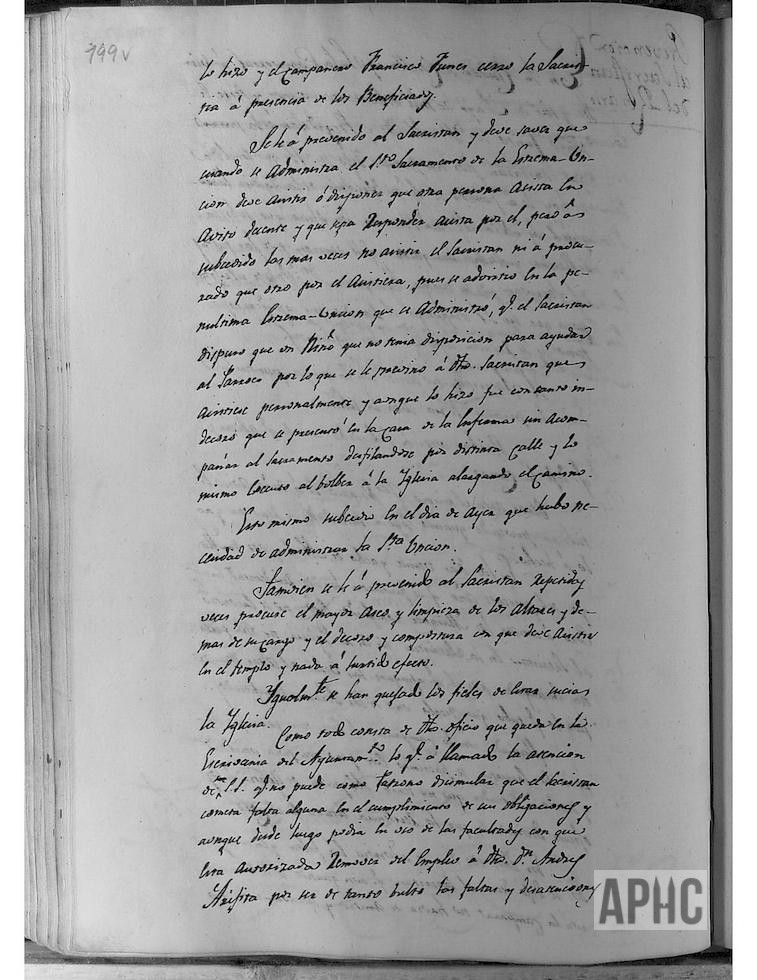 799v
lo hizo y el Campanero Francisco Funes cerro la Sacris-
tia á presencia de los Beneficiados.
Se le á prevenido al Sacristan y deve saver que
cuando se administra el Sto. Sacramento de la Estrema-Un-
cion deve asistir ó disponer que otra persona asista en
avito decente y que sepa Responder asista por el, pero ân
subcedido las mas veces no asistir el Sacristan ni á procu-
rado que otro por el asistiera, pues se advirtio en la pe-
nultima Estrema-Uncion que se administró, qe. el Sacristan
dispuso que un Niño que no tenia disposicion para ayudar
al Parroco por lo que se le previno á dho. Sacristan que
asistiese personalmente y aunque lo hizo fue con tanto in-
decoro que se presentó en la Casa de la Enferma sin acom-
pañar al Sacramento desfilandose por distinta Calle y lo
mismo al bolber á la Yglesia alargando el Camino.
Esto mismo subcedio en el dia de ayer que hubo ne-
cesidad de administrar la Sta. Uncion.
Tamvien se le á prevenido al Sacristan repetidas
veces procure el mayor aseo y limpieza de los altares y de-
mas de su cargo y el decoro y compostura con que deve asistir
en el templo y nada á surtido efecto.
Ygualmte. se han quejado los fieles de estar sucias
la Yglesia.
Como todo consta de dho. oficio que queda en la
Escrivania del Ayuntamto. lo qe. á llamado la atencion
de S.S. qe. no puede como Patrono disimular que el Sacristan
cometa falta alguna en el cumplimiento de sus obligaciones y
aunque desde luego podia en uso de las facultades con que
esta autorizada Remover del Empleo á dho. Dn. Andres
por ser de tanto bulto las faltas y desatenciones
APHC